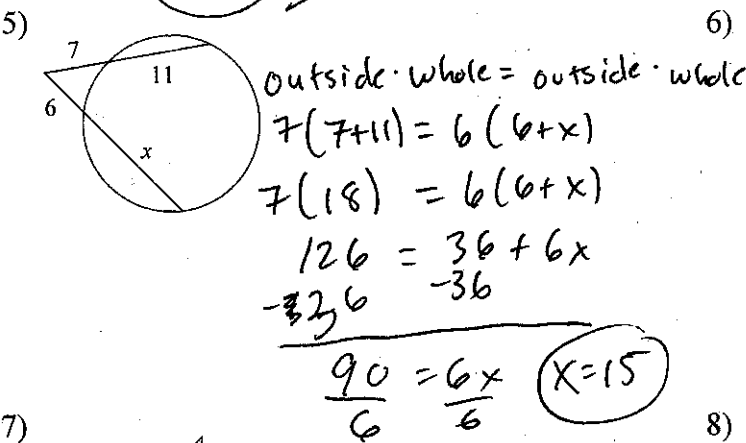 5)
6)
7
11
6
x
outside · whole = outside · whole
7(7+11) = 6(6+x)
7(18) = 6(6+x)
126 = 36 + 6x
-36 -36
90 = 6x
6 6
x=15
7)
8)